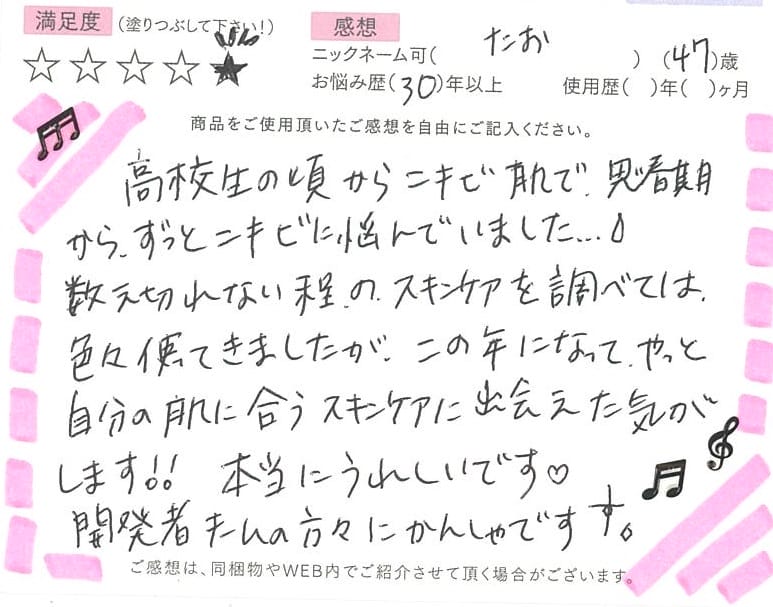 満足度 (塗りつぶして下さい!) 感想
ニックネーム可( たお ) (47)歳
☆☆☆☆★ お悩み歴(30)年以上 使用歴( )年( )ヶ月
商品をご使用頂いたご感想を自由にご記入ください。
高校生の頃からニキビ肌で、思春期
から、ずっとニキビに悩んでいました...
数え切れない程、の、スキンケアを調べては、
色々使ってきましたが、この年になって、やっと
自分の肌に合うスキンケアに出会えた気が
します!! 本当にうれしいです♡
開発者さんの方々にかんしゃです
ご感想は、同梱物やWEB内でご紹介させて頂く場合がございます。